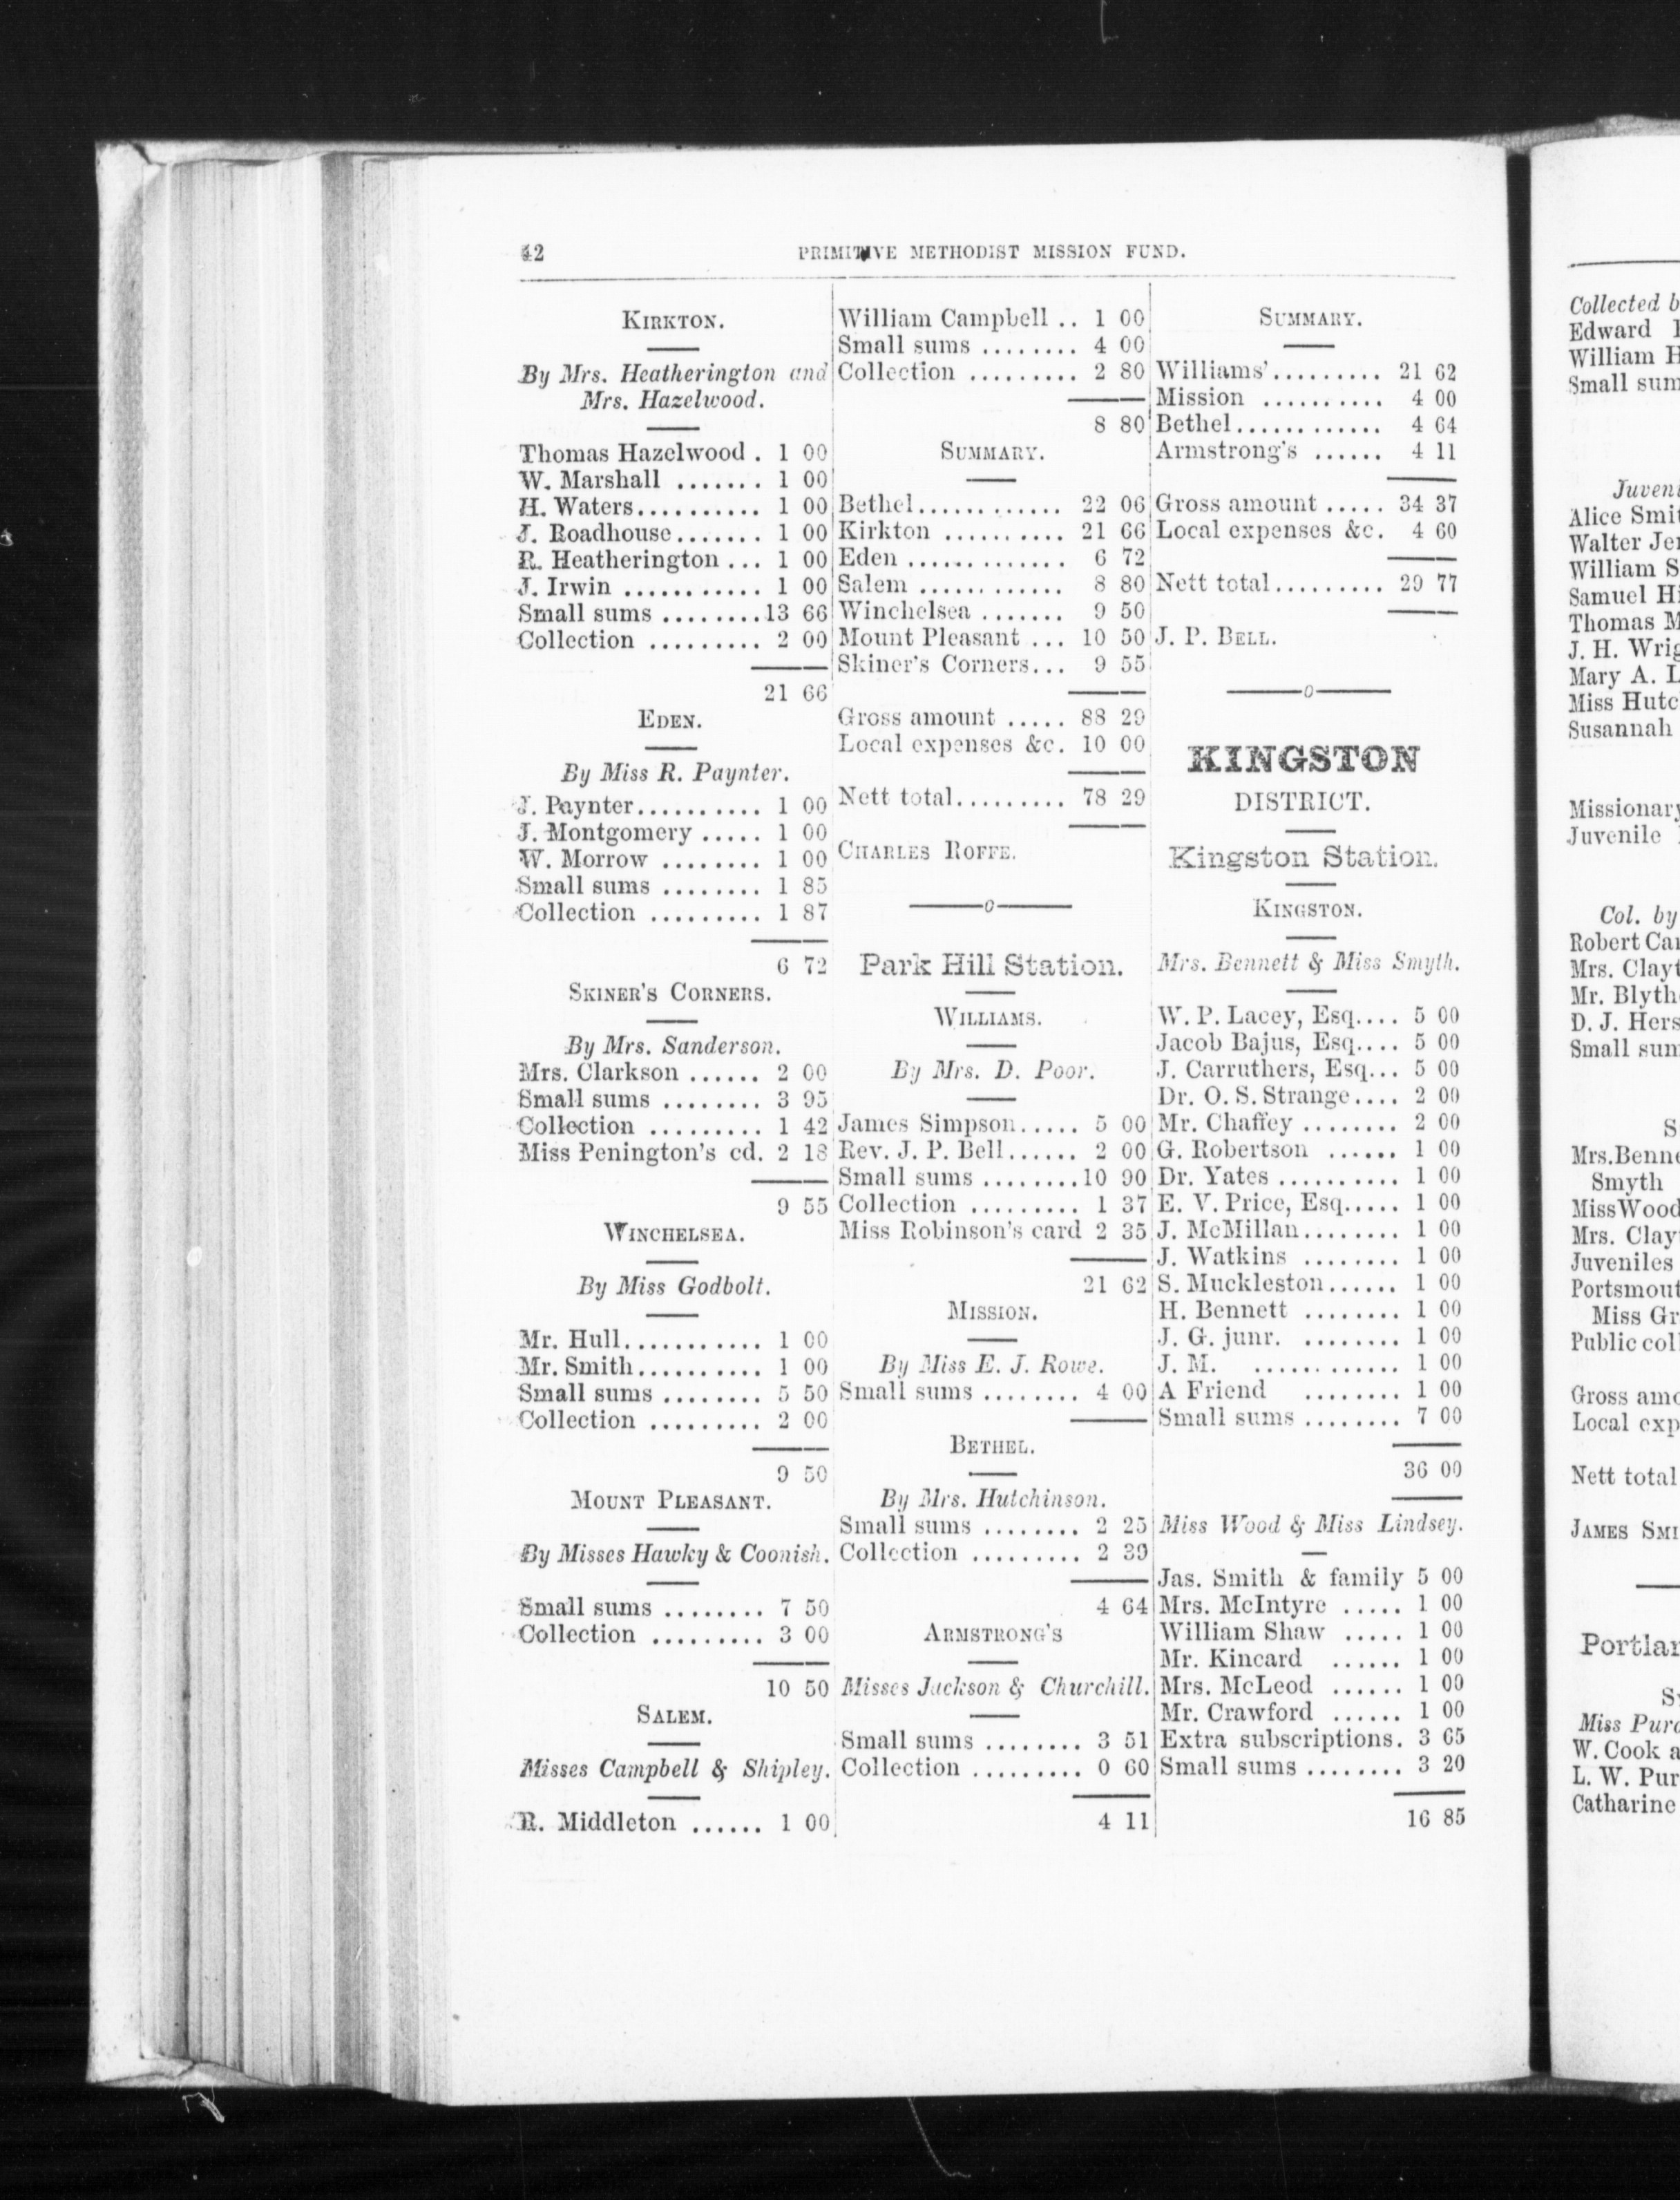 42 PRIMITIVE METHODIST MISSION FUND.
KIRKTON.
By Mrs. Heatherington and
Mrs. Hazelwood.
Thomas Hazelwood . 1 00
W. Marshall ....... 1 00
H. Waters.......... 1 00
J. Roadhouse....... 1 00
R. Heatherington ... 1 00
J. Irwin ........... 1 00
Small sums ........13 66
Collection ......... 2 00
21 66
EDEN.
By Miss R. Paynter.
J. Paynter.......... 1 00
J. Montgomery ..... 1 00
W. Morrow ........ 1 00
Small sums ........ 1 85
Collection ......... 1 87
6 72
SKINER'S CORNERS.
By Mrs. Sanderson.
Mrs. Clarkson ...... 2 00
Small sums ........ 3 95
Collection ......... 1 42
Miss Penington's cd. 2 18
9 55
WINCHELSEA.
By Miss Godbolt.
Mr. Hull........... 1 00
Mr. Smith.......... 1 00
Small sums ........ 5 50
Collection ......... 2 00
9 50
MOUNT PLEASANT.
By Misses Hawky & Coonish.
Small sums ........ 7 50
Collection ......... 3 00
10 50
SALEM.
Misses Campbell & Shipley.
R. Middleton ...... 1 00
William Campbell .. 1 00
Small sums ........ 4 00
Collection ......... 2 80
8 80
SUMMARY.
Bethel............ 22 06
Kirkton .......... 21 66
Eden ............. 6 72
Salem ............ 8 80
Winchelsea ....... 9 50
Mount Pleasant ... 10 50
Skiner's Corners... 9 55
Gross amount ..... 88 29
Local expenses &c. 10 00
Nett total......... 78 29
CHARLES ROFFE.
Park Hill Station.
WILLIAMS.
By Mrs. D. Poor.
James Simpson..... 5 00
Rev. J. P. Bell...... 2 00
Small sums ........10 90
Collection ......... 1 37
Miss Robinson's card 2 35
21 62
MISSION.
By Miss E. J. Rowe.
Small sums ........ 4 00
BETHEL.
By Mrs. Hutchinson.
Small sums ........ 2 25
Collection ......... 2 39
4 64
ARMSTRONG'S
Misses Jackson & Churchill.
Small sums ........ 3 51
Collection ......... 0 60
4 11
SUMMARY.
Williams'......... 21 62
Mission .......... 4 00
Bethel............ 4 64
Armstrong's ...... 4 11
Gross amount ..... 34 37
Local expenses &c. 4 60
Nett total......... 29 77
J. P. BELL.
KINGSTON
DISTRICT.
Kingston Station.
KINGSTON.
Mrs. Bennett & Miss Smyth.
W. P. Lacey, Esq.... 5 00
Jacob Bajus, Esq.... 5 00
J. Carruthers, Esq... 5 00
Dr. O. S. Strange.... 2 00
Mr. Chaffey ........ 2 00
G. Robertson ...... 1 00
Dr. Yates .......... 1 00
E. V. Price, Esq..... 1 00
J. McMillan........ 1 00
J. Watkins ........ 1 00
S. Muckleston...... 1 00
H. Bennett ........ 1 00
J. G. junr. ........ 1 00
J. M. ............ 1 00
A Friend ........ 1 00
Small sums ........ 7 00
36 00
Miss Wood & Miss Lindsey.
Jas. Smith & family 5 00
Mrs. McIntyre ..... 1 00
William Shaw ..... 1 00
Mr. Kincard ...... 1 00
Mrs. McLeod ...... 1 00
Mr. Crawford ...... 1 00
Extra subscriptions. 3 65
Small sums ........ 3 20
16 85
Collected
Edward
William
Small
Alice
Walter
William
Samuel
Thomas
J. H.
Mary A.
Miss
Susannah
Juvenile
Col. by
Robert
Mrs.
Mr.
D. J.
Small
Smyth
Mrs.
Juveniles
Miss
Public
Gross
Local
Nett total
JAMES
Miss
W. Cook
L. W.
Catharine